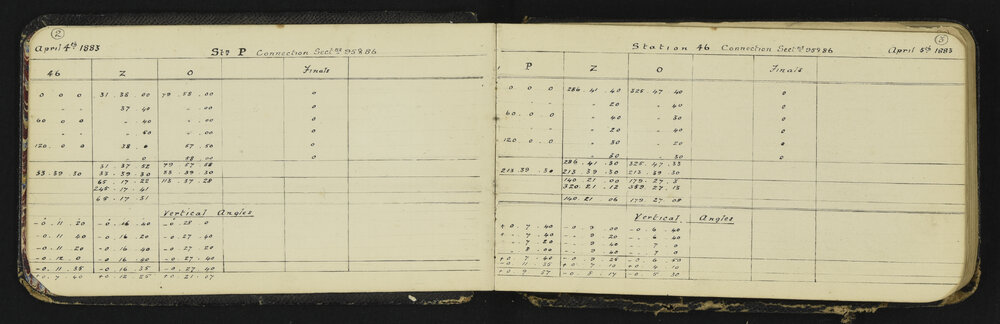 2
April 4th 1883
Stn P Connection Sectns 95&86
46 Z O Finals
0 0 0 31.38.00 79.58.00 0
" " 37.40 " .00 0
60 0 0 " .40 " .00 0
" " " .00 0
120.0 0 38.0 57.50 0
" " " 0 58.00 0
31.37.52 79 57.58
33.39.30 33.39.30 33.39.30
65.17.22 113.37.28
245.17.41
65.17.31
Vertical Angles
-0.11.20 -0.16.40 -0 28 0
-0.11.40 -0.16.20 -0.27.40
-0.11.20 -0.16.40 -0.27.20
-0.12.0 -0.16.40 -0.27.40
-0.11.35 -0.16.35 -0.27.40
+0.7.40 +0.12.25 +0.21.07
3
Station 46 Connection Sectns 95&86 April 5th 1883
P Z O Finals
0 0 0 286.41.40 325.47.40 0
" " " 20 " .40 0
60.0.0 " 40 " .30 0
" " " 20 " .40 0
120 0 0 " 30 " .20 0
" " " 30 " .30 0
286.41.30 325.47.33
213.39.30 213.39.30 213.39.30
140 21 00 179.27.3
320.21.12 359.27.13
140 21 06 179.27.08
Vertical Angles
+0.7.40 -0.9.00 -0.6.40
+ .7.40 - .9 20 - .6.40
- .7 20 - .9 40 - .7 0
- .8 00 - .9.40 - .7 0
+0.7.40 -0.9 25 -0.6.50
-0.11.35 +0.7.10 +0.4.10